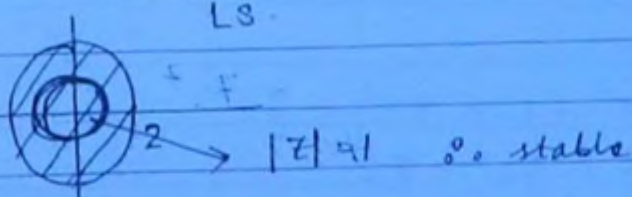 LS.
2
|z|=1 ∴ stable